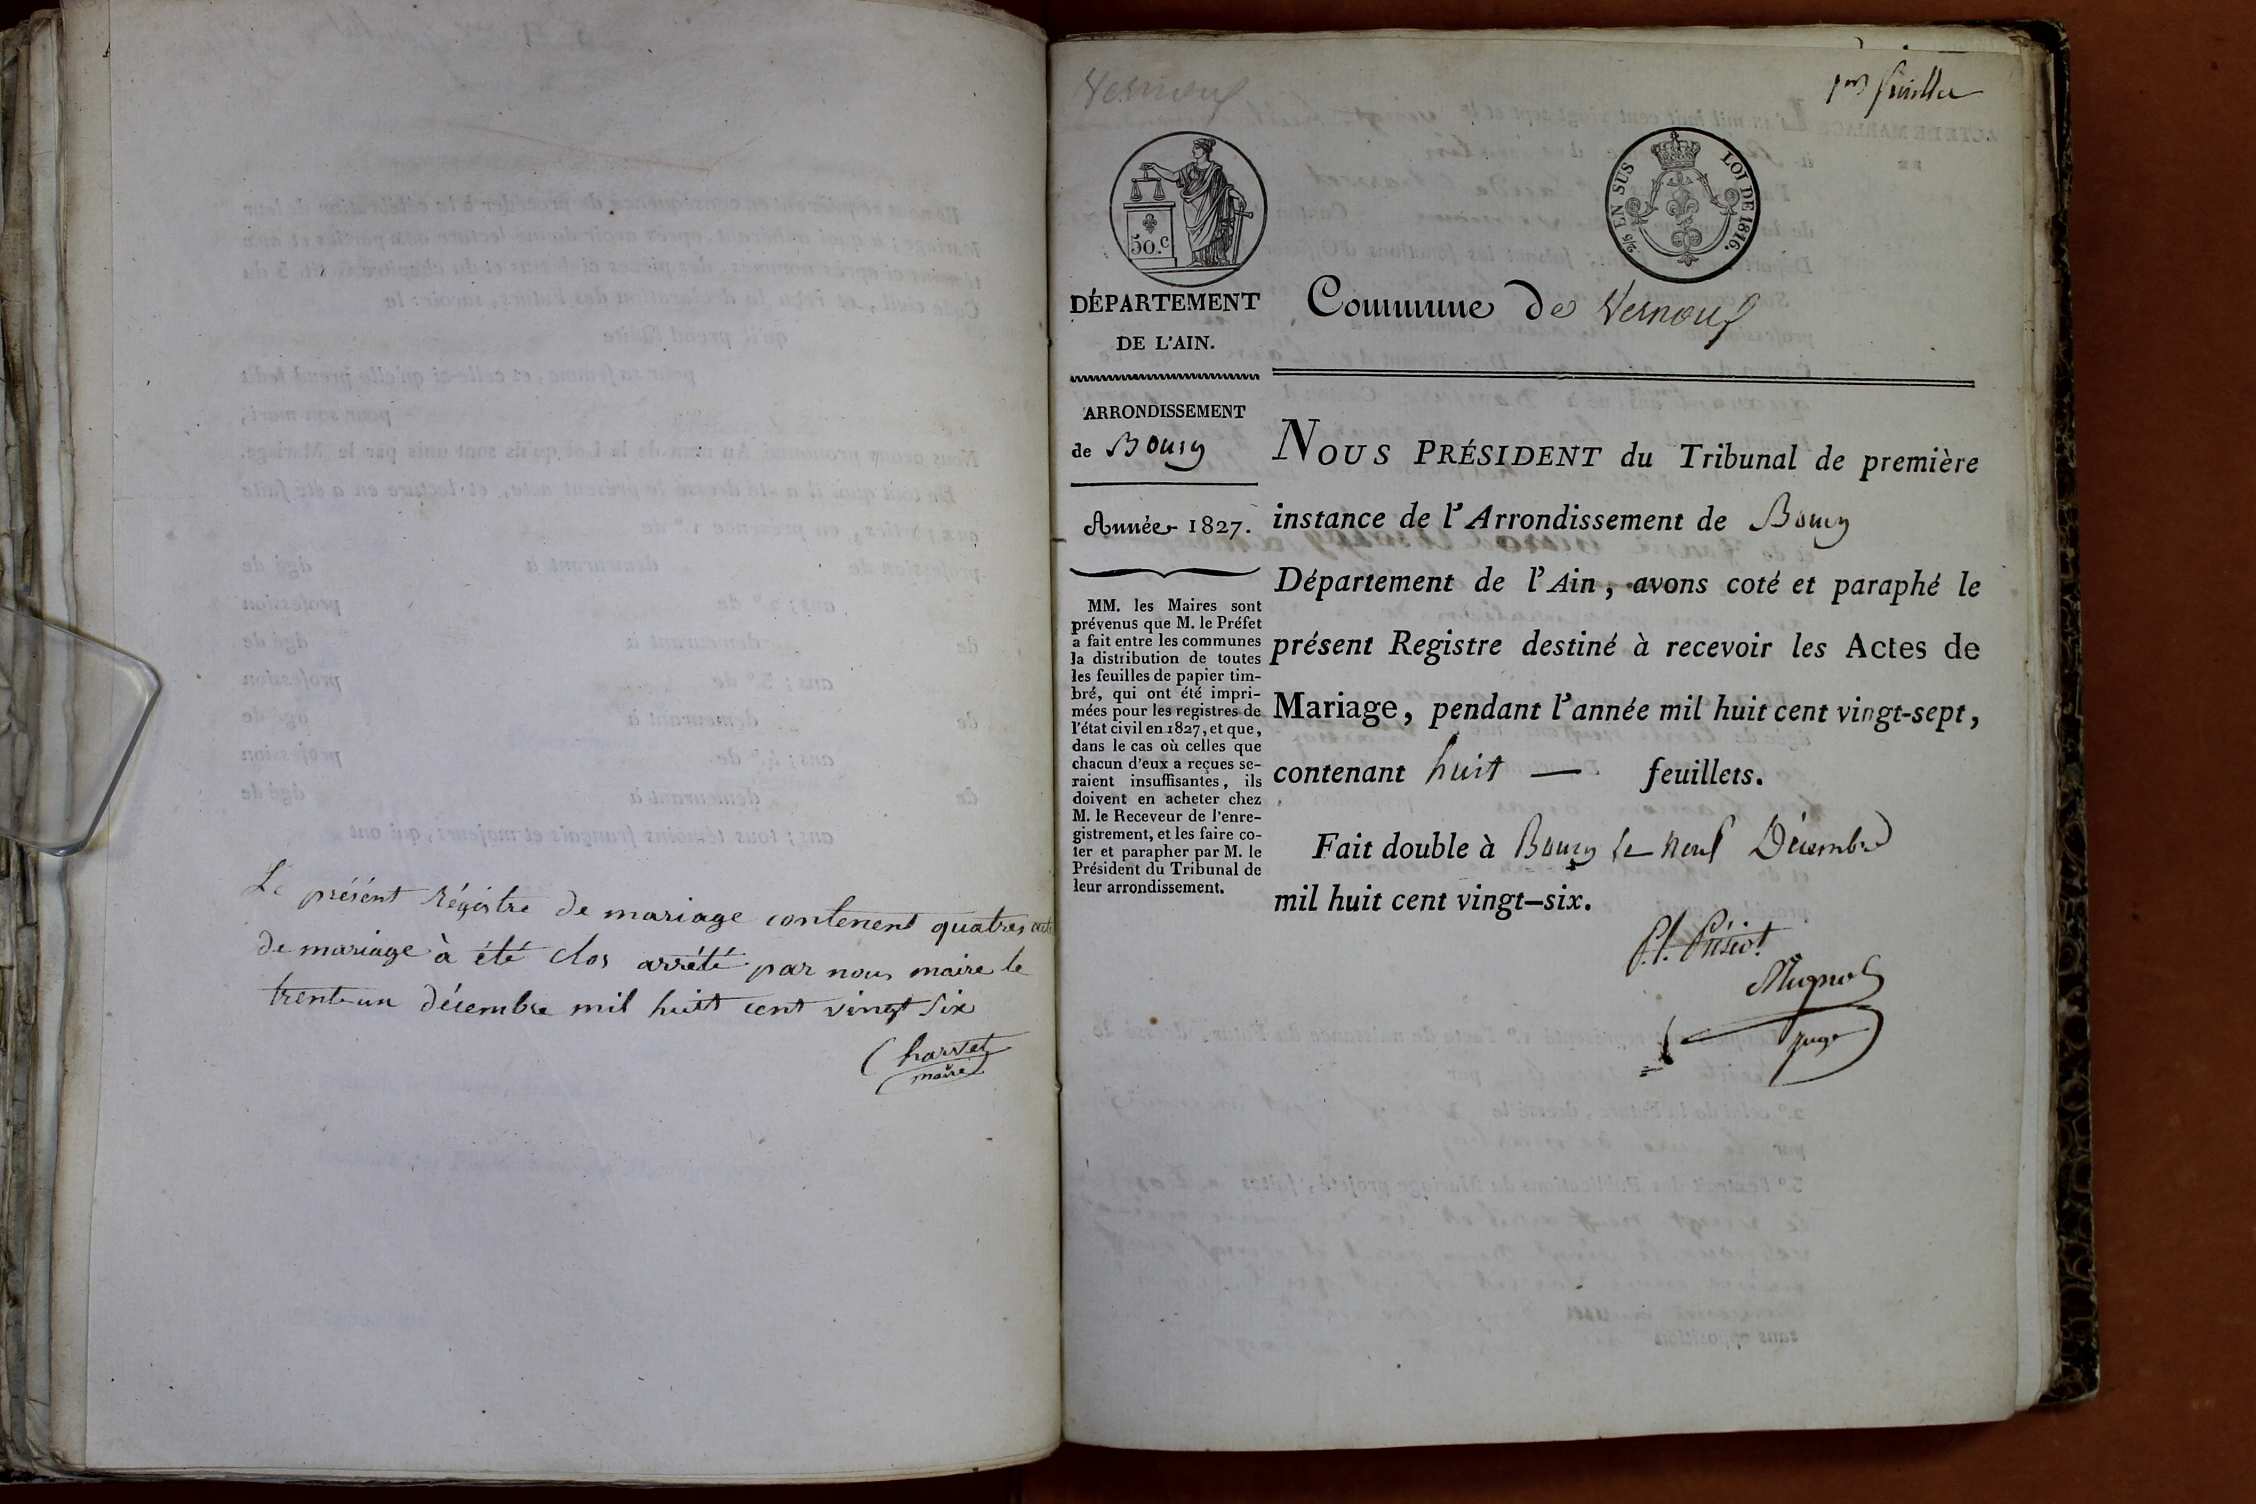 Le présént Régistre de mariage contenent quatres acte
de mariage à été clos arrété par nous maire le
trente un décembre mil huit cent vingt six
Charvet
maire
Vernoux
1er feuillet
50.c
2/5 EN SUS LOI DE 1816.
DÉPARTEMENT
DE L'AIN.
ARRONDISSEMENT
de Bourg
Année 1827.
MM. les Maires sont
prévenus que M. le Préfet
a fait entre les communes
la distribution de toutes
les feuilles de papier tim-
bré, qui ont été impri-
mées pour les registres de
l'état civil en 1827, et que,
dans le cas où celles que
chacun d'eux a reçues se-
raient insuffisantes, ils
doivent en acheter chez
M. le Receveur de l'enre-
gistrement, et les faire co-
ter et parapher par M. le
Président du Tribunal de
leur arrondissement.
Commune de Vernoux
NOUS PRÉSIDENT du Tribunal de première
instance de l'Arrondissement de Bourg
Département de l'Ain, avons coté et paraphé le
présent Registre destiné à recevoir les Actes de
Mariage, pendant l'année mil huit cent vingt-sept,
contenant huit — feuillets.
Fait double à Bourg le neuf Décembre
mil huit cent vingt-six.
juge